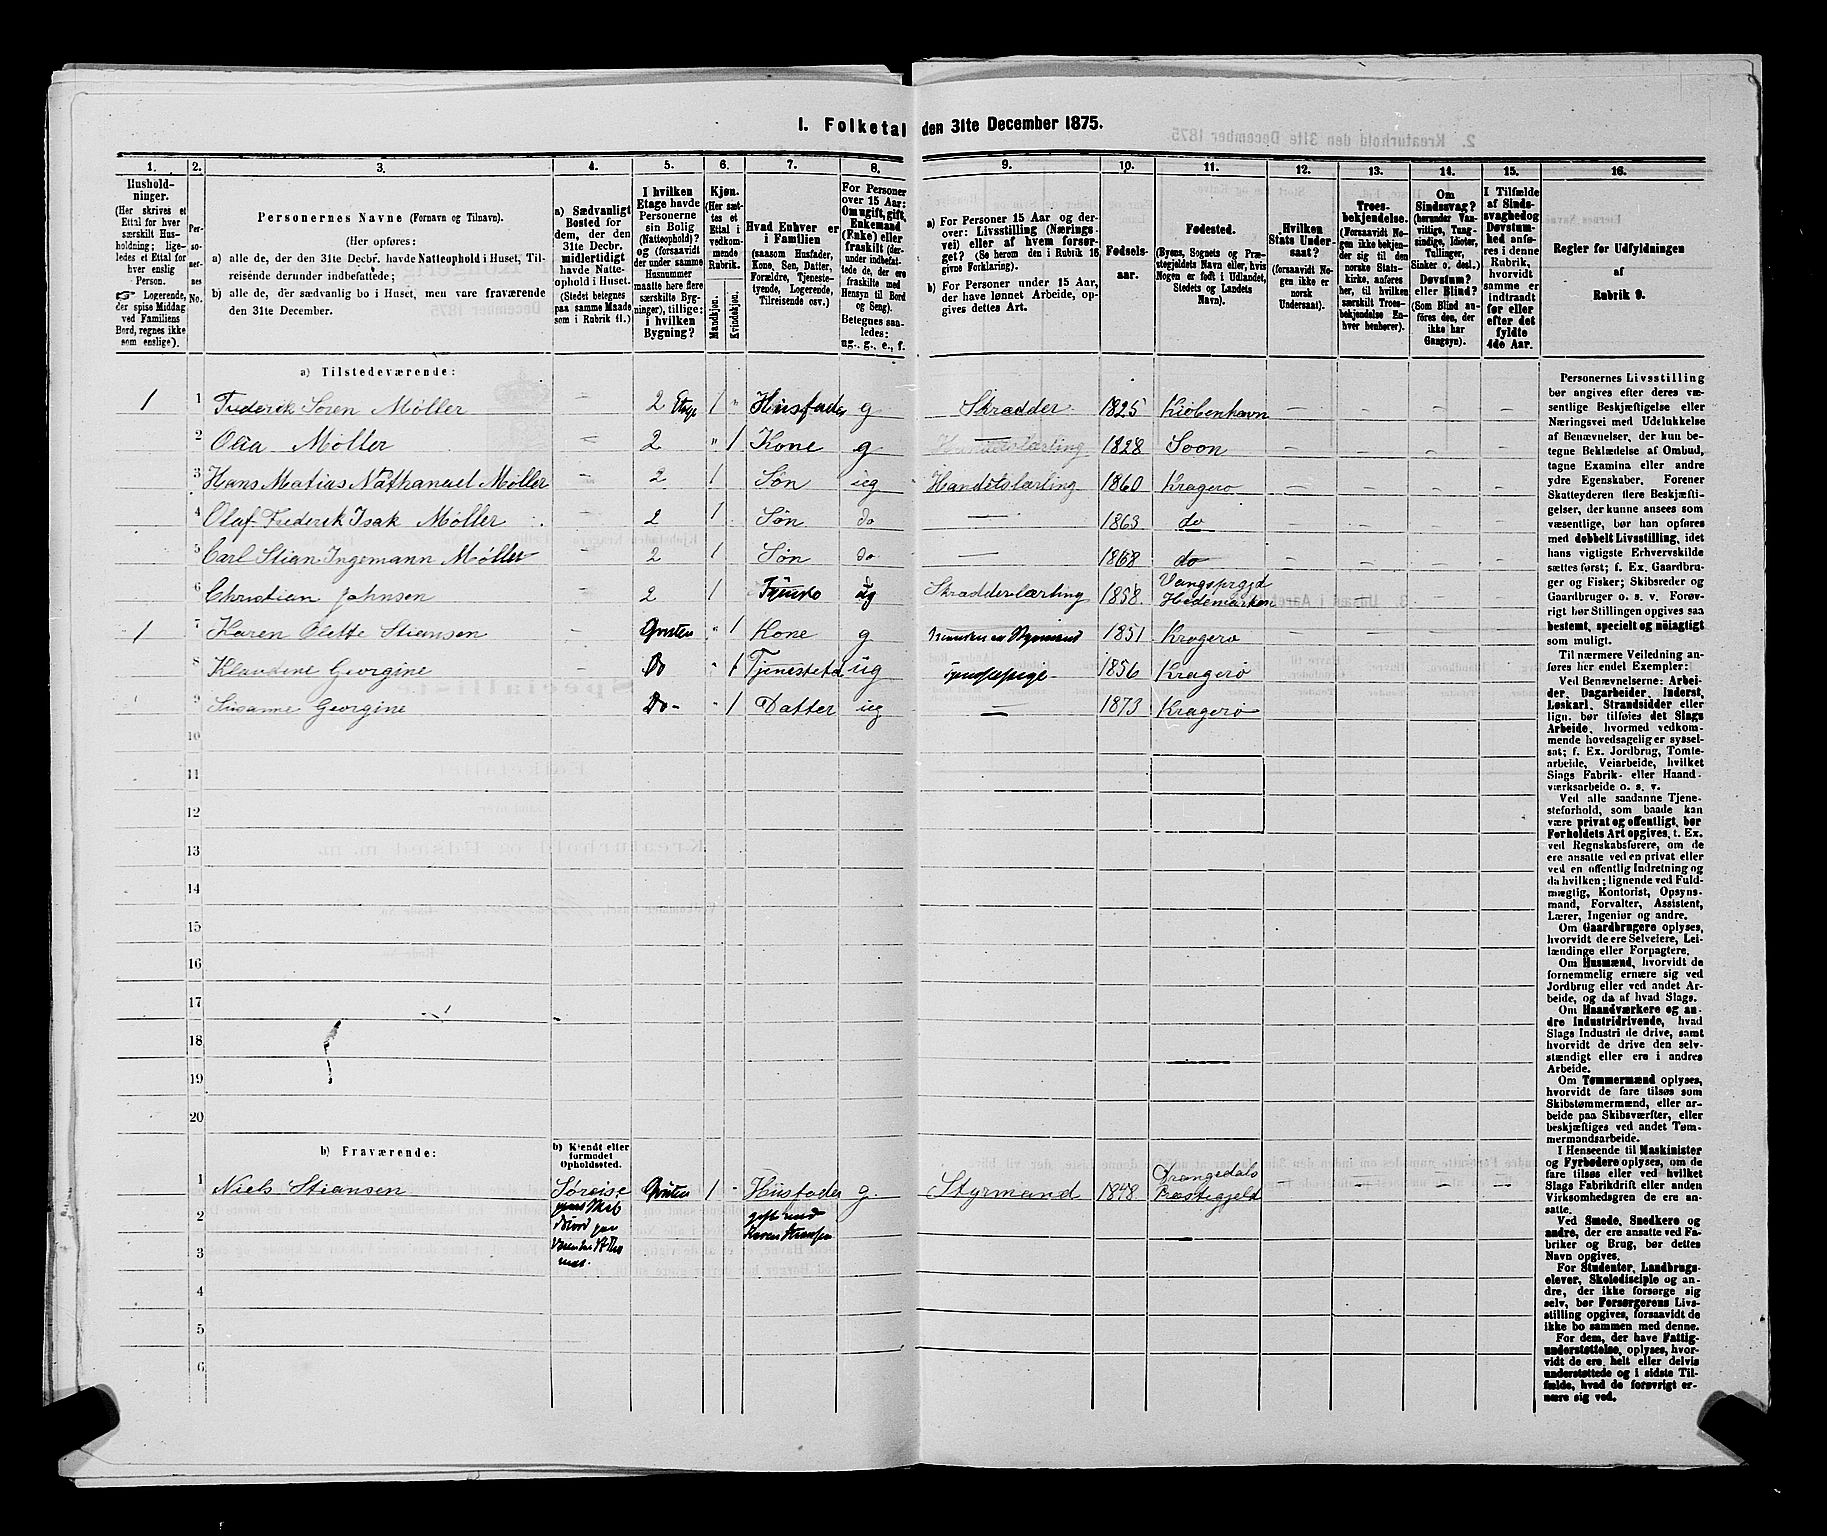 I. Folketal den 31te December 1875.
1. 2. 3. 4. 5. 6. 7. 8. 9. 10. 11. 12. 13. 14. 15. 16.
Husholdninger.
(Her skrives et
Ettal for hver
særskilt Husholdning;
ligeledes et Ettal for
hver enslig
Person.
☞ Logerende,
der spise Middag
ved Familiens
Bord, regnes ikke
som enslige).
Personernes No.
Personernes Navne (Fornavn og Tilnavn).
(Her opføres:
a) alle de, der den 31te Decbr. havde Natteophold i Huset, Tilreisende derunder indbefattede;
b) alle de, der sædvanlig bo i Huset, men vare fraværende
den 31te December.
a) Sædvanligt
Bosted for
dem, der den
31te Decbr.
midlertidigt
havde Natteophold i Huset.
(Stedet betegnes
paa samme Maade
som i Rubrik 11.)
I hvilken
Etage havde
Personerne
sin Bolig
(Natteophold)?
og (forsaavidt
der under samme
Husnummer
maatte høre flere
særskilte Bygninger), tillige:
i hvilken
Bygning?
Kjøn.
(Her sættes et
Ettal i
vedkommende
Rubrik.
Mandkjøn.
Kvindekjøn.
Hvad Enhver er
i Familien
(saasom Husfader,
Kone, Søn, Datter,
Forældre, Tjenestetyende, Logerende,
Tilreisende osv.)
For Personer
over 15 Aar:
Om ugift, gift,
Enkemand
(Enke) eller
fraskilt (derunder indbefattede de, der ere
fraskilte med
Hensyn til Bord
og Seng).
Betegnes saaledes:
ug., g., e., f.
a) For Personer 15 Aar og derover: Livsstilling (Næringsvei) eller af hvem forsørget? (Se herom den i Rubrik 16
givne Forklaring).
b) For Personer under 15 Aar,
der have lønnet Arbeide, opgives dettes Art.
Fødselsaar.
Fødested.
(Byens, Sognets og Præstegjeldets Navn eller, hvis
Nogen er født i Udlandet,
Stedets og Landets
Navn).
Hvilken
Stats Undersaat?
(forsaavidt Nogen ikke er
norsk
Undersaat).
Troesbekjendelse.
(Forsaavidt Nogen ikke bekjender sig til den
norske Statskirke, anføres
her, til hvilken
særskilt Troesbekjendelse Enhver henhører).
Om
Sindssvag?
(herunder Vanvittige, Tungsindige, Idioter,
Tullinger,
Sinker o. desl.)
Døvstum?
eller Blind?
(Som Blind anføres den, der
ikke har
Gangsyn).
I Tilfælde
af Sindssvaghed og
Døvstumhed anføres i denne
Rubrik,
hvorvidt
samme er
indtraadt
før eller
efter det
fyldte
4de Aar.
Regler for Udfyldningen
af
Rubrik 9.
a) Tilstedeværende:
1 1 Frederik Søren Møller – 2 Etage 1 " Husfader g Skrædder 1825 Kiøbenhavn
2 Olia Møller 2 " 1 Kone g — 1828 Soon
3 Hans Matias Nathanael Møller 2 1 Søn ug Handelslærling 1860 Kragerø
4 Olaf Frederik Isak Møller 2 1 Søn do — 1863 do
5 Carl Stian Ingemann Møller 2 1 Søn do — 1868 do
6 Christian Johnsen 2 1 ug Skrædderlærling 1858 Vangsprgjd Hedemarken
1 7 Karen Olette Stiansen " 1 Kone g 1851 Kragerø
8 Klaudine Georgine Do " 1 ug 1856 Kragerø
9 Susanne Georgine Do " 1 Datter ug — 1873 Kragerø
10
11
12
13
14
15
16
17
18
19
20
b) Fraværende:
b) Kjendt eller
formodet
Opholdssted.
1 Niels Stiansen 1 Husfader g. Styrmand 1848 Drangedals Præstegjeld
2 gift med
3
4
5
6
Personernes Livsstilling
bør angives efter deres væsentlige Beskjæftigelse eller
Næringsvei med Udelukkelse
af Benævnelser, der kun betegne Beklædelse af Ombud,
tagne Examina eller andre
ydre Egenskaber. Forener
Skatteyderen flere Beskjæftigelser, der kunne ansees som
væsentlige, bør han opføres
med dobbelt Livsstilling, idet
hans vigtigste Erhvervskilde
sættes først; f. Ex. Gaardbruger og Fisker; Skibsreder og
Gaardbruger o. s. v. Forøvrigt bør Stillingen opgives saa
bestemt, specielt og nöiagtigt
som muligt.
Til nærmere Veiledning anføres her endel Exempler:
Ved Benævnelserne: Arbeider, Dagarbeider, Inderst,
Løskarl, Strandsidder eller
lign. bør tilføies det Slags
Arbeide, hvormed vedkommende hovedsagelig er sysselsat; f. Ex. Jordbrug, Tomtearbeide, Veiarbeide, hvilket
Slags Fabrik- eller Haandværksarbeide o. s. v.
Ved alle saadanne Tjenesteforhold, som baade kan
være privat og offentligt, bør
Forholdets Art opgives, t. Ex.
ved Regnskabsførere, om de
ere ansatte ved en privat eller
ved en offentlig Indretning og
da hvilken; lignende ved Fuldmægtig, Kontorist, Opsynsmand, Forvalter, Assistent,
Lærer, Ingeniør og andre.
Om Gaardbrugere oplyses,
hvorvidt de ere Selveiere, Leilændinge eller Forpagtere.
Om Husmænd, hvorvidt de
fornemmelig ernære sig ved
Jordbrug eller ved andet Arbeide, og da af hvad Slags.
Om Haandværkere og andre Industridrivende, hvad
Slags Industri de drive, samt
hvorvidt de drive den selvstændigt eller ere i andres
Arbeide.
Om Tømmermænd oplyses,
hvorvidt de fare tilsøs som
Skibstømmermænd, eller arbeide paa Skibsværfter, eller
beskjæftiges ved andet Tømmermandsarbeide.
I Henseende til Maskinister
og Fyrbødere oplyses, om de
fare tilsøs eller ved hvilket
Slags Fabrikdrift eller anden
Virksomhedsgren de ere ansatte.
Ved Smede, Snedkere og
andre, der ere ansatte ved Fabriker og Brug, bør dettes
Navn opgives.
For Studenter, Landbrugselever, Skoledisciple og andre, der ikke forsørge sig
selv, bør Forsørgerens Livsstilling opgives, forsaavidt de
ikke bo sammen med denne.
For dem, der have Fattigunderstøttelse, oplyses, hvorvidt de ere helt eller delvis
understøttede og i sidste Tilfælde, hvad de forøvrigt ernære sig ved.